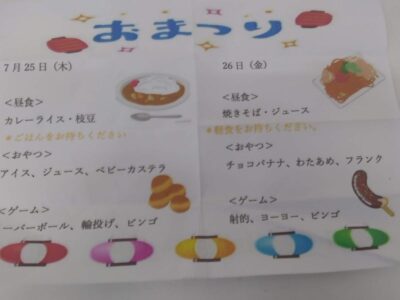 おまつり
7月25日（木）
<昼食>
カレーライス・枝豆
*ごはんをお持ちください
<おやつ>
アイス、ジュース、ベビーカステラ
<ゲーム>
ーパーボール、輪投げ、ビンゴ
26日（金）
<昼食>
焼きそば・ジュース
*軽食をお持ちください。
<おやつ>
チョコバナナ、わたあめ、フランク
<ゲーム>
射的、ヨーヨー、ビンゴ